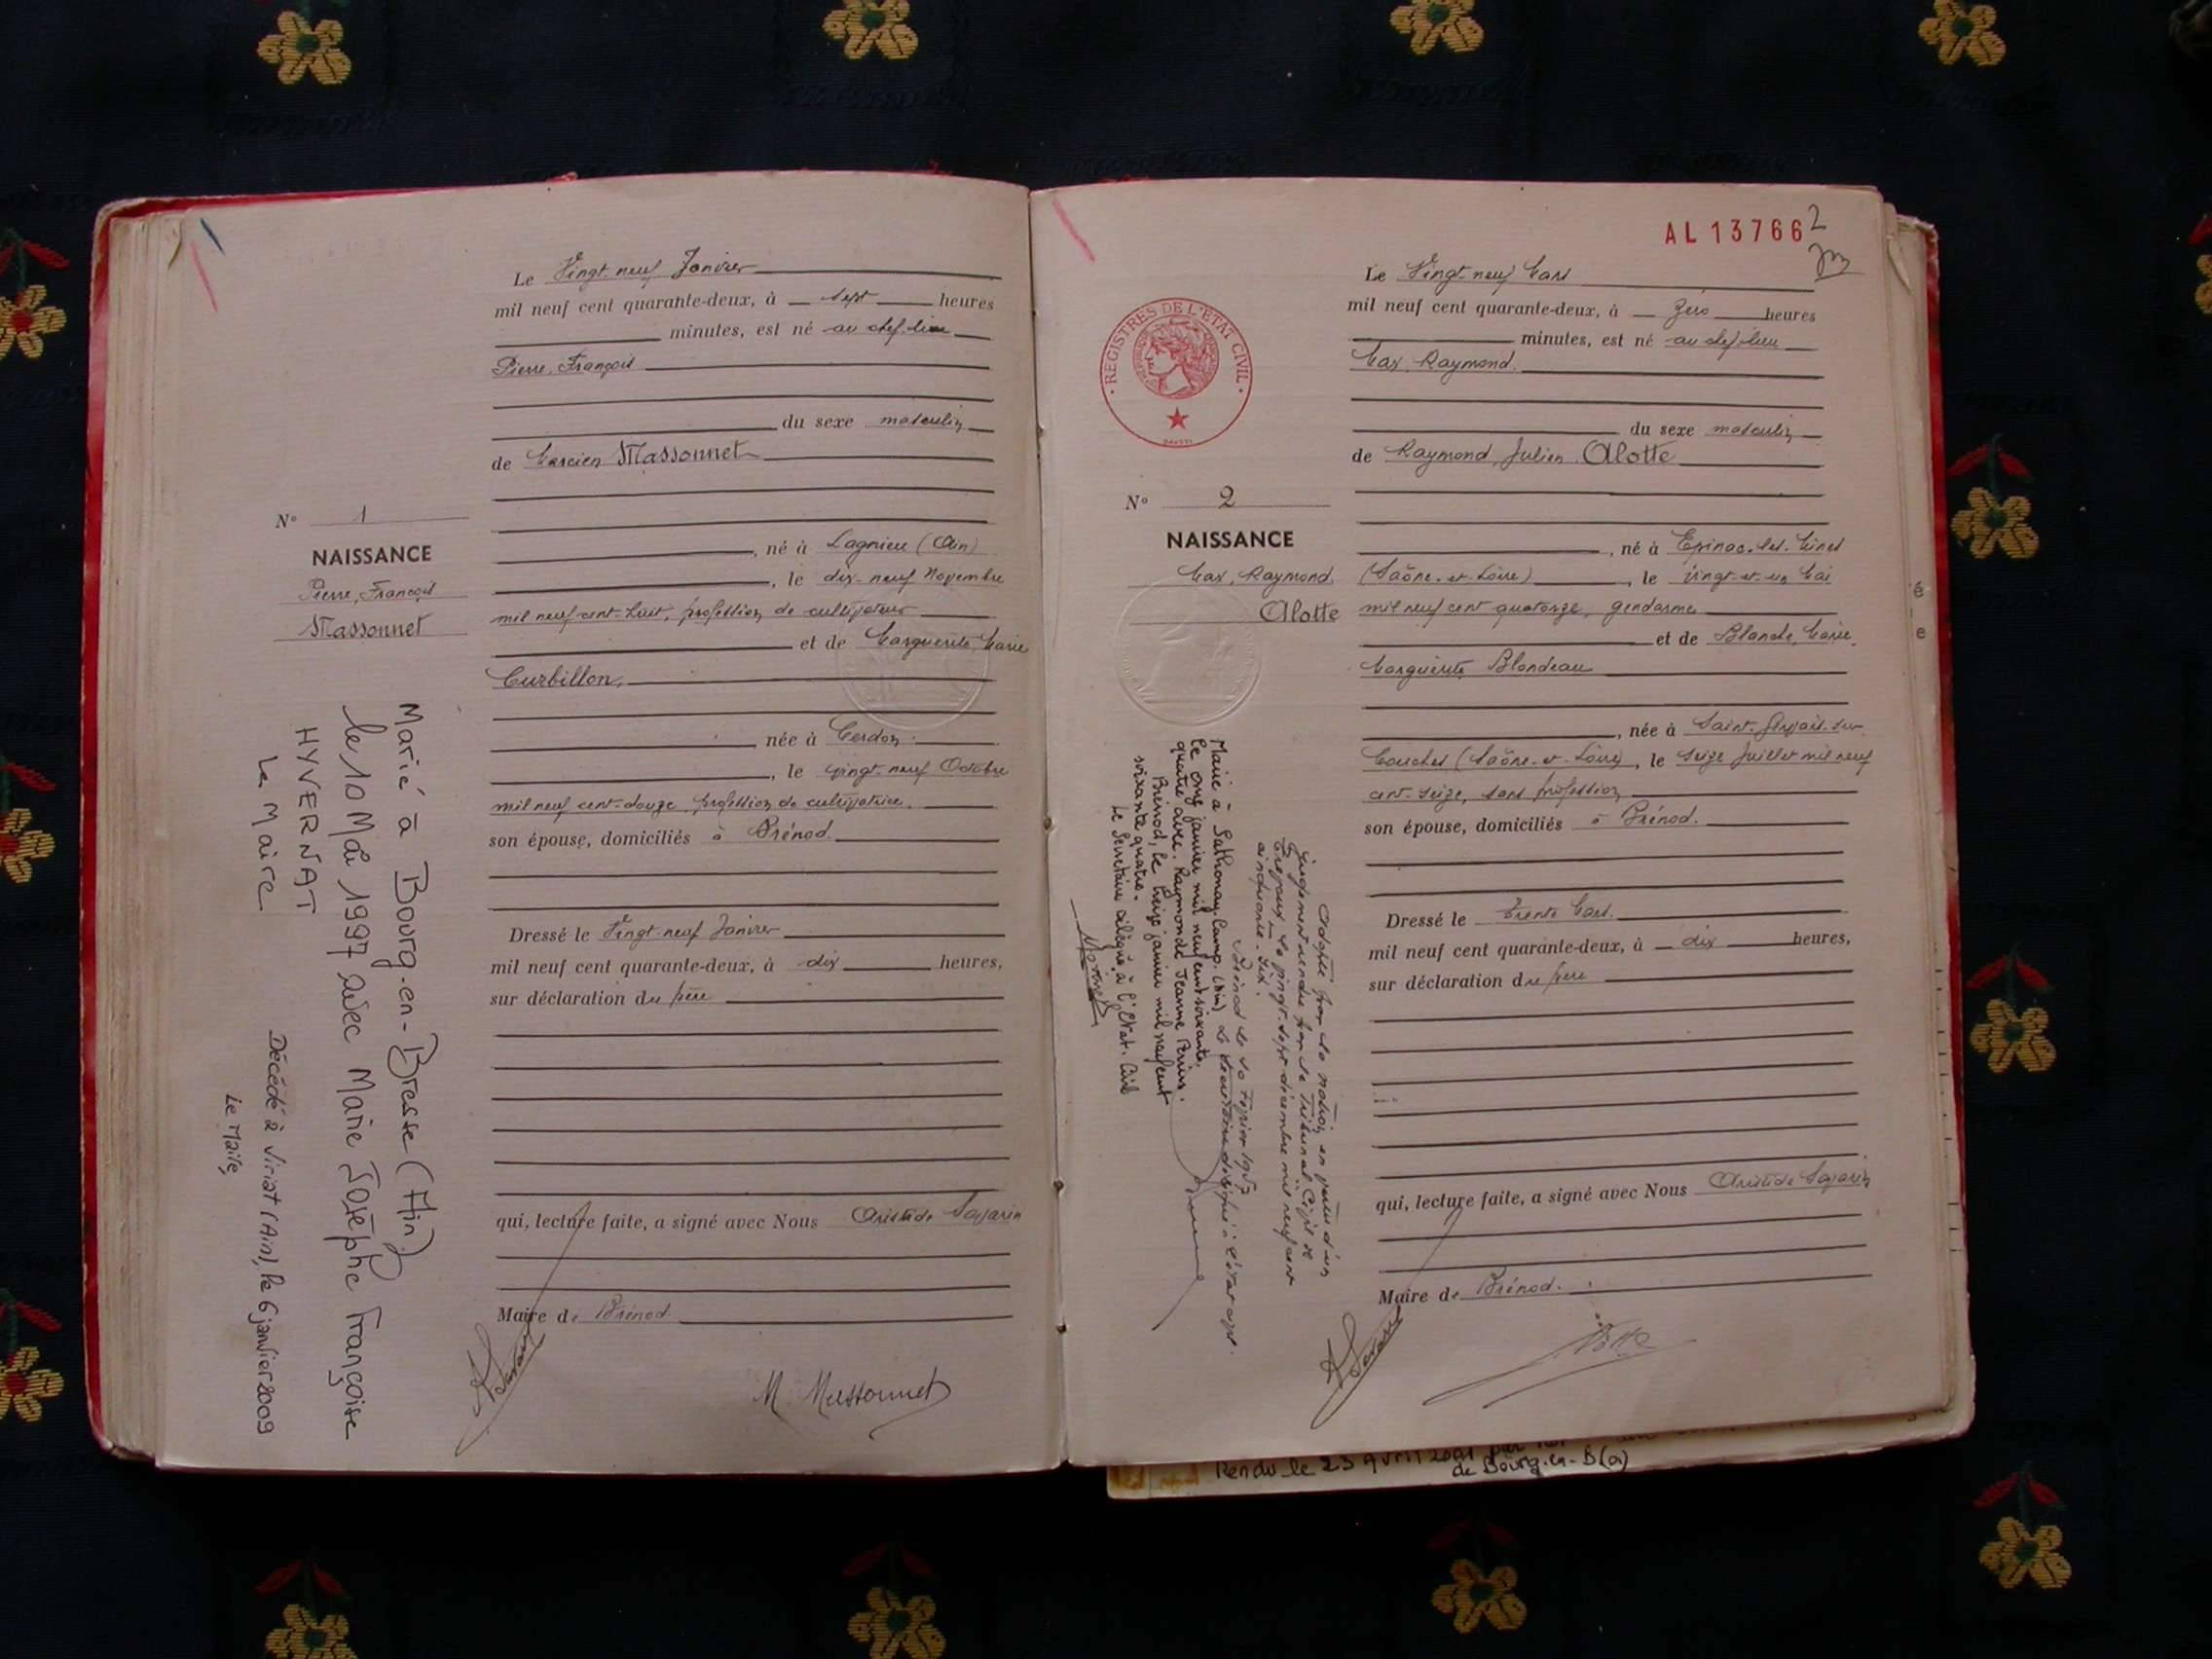 Le Vingt-neuf Janvier
mil neuf cent quarante-deux, à sept heures
minutes, est né au chef-lieu
Pierre, François
du sexe masculin
de Marcien Massonnet
N° 1
NAISSANCE
Pierre, François
Massonnet
, né à Lagnieu (Ain)
, le dix-neuf Novembre
mil neuf cent-huit, profession de cultivateur
et de Marguerite, Marie
Curbillon,
née à Cerdon
, le vingt-neuf Octobre
mil neuf cent-douze, profession de cultivatrice.
son épouse, domiciliés à Brénod.
Dressé le Vingt-neuf Janvier
mil neuf cent quarante-deux, à dix heures,
sur déclaration du père
qui, lecture faite, a signé avec Nous Aristide Savarin
Maire de Brénod
M. Massonnet
Marié à Bourg-en-Bresse (Ain)
le 10 Mai 1997 avec Marie Josèphe Françoise
HYVERNAT
Le Maire
Décédé à Viriat (Ain), le 6 janvier 2009
Le Maire,
AL 13766
2
REGISTRES DE L'ETAT CIVIL
Le Vingt-neuf Mars
mil neuf cent quarante-deux, à zéro heures
minutes, est né au chef-lieu
Max, Raymond.
du sexe masculin
de Raymond, Julien Alotte
N° 2
NAISSANCE
Max, Raymond
Alotte
, né à Epinac-les-Mines
(Saône-et-Loire), le vingt-et-un Mai
mil neuf cent quatorze, gendarme
et de Blanche, Marie,
Marguerite Blondeau
, née à Saint-Gervais-sur-
Couches (Saône-et-Loire), le seize Juillet mil neuf
cent-seize, sans profession
son épouse, domiciliés à Brénod.
Dressé le trente Mars.
mil neuf cent quarante-deux, à dix heures,
sur déclaration du père
qui, lecture faite, a signé avec Nous Aristide Savarin
Maire de Brénod.
Adopté par la nation en vertu d'un
jugement rendu par le Tribunal Civil de
le vingt-sept décembre mil neuf cent
cinquante-six.
Brénod le 20 Février 1957
Le Secrétaire délégué à l'état civil.
Marié à Sathonay-Camp (Ain)
le onze janvier mil neuf cent soixante
quatre avec Raymonde Jeanne
Brénod, le treize janvier mil neuf cent
soixante quatre.
Le Secrétaire délégué à l'Etat-Civil
Rendu le 23 Avril 2001 par
de Bourg-en-B(01)